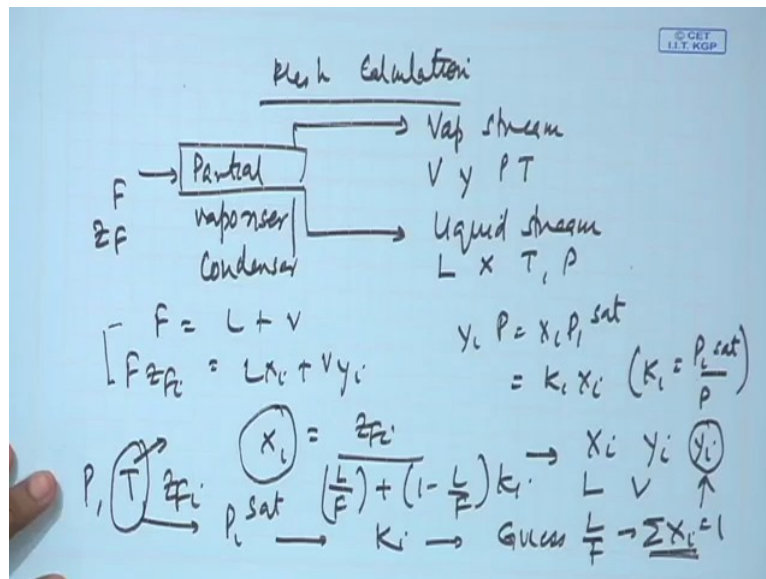 © CET
I.I.T. KGP
Flesh Calculation
F
zF
Partial
vaporiser
Condenser
Vap stream
V y P T
Liquid stream
L x T, P
F = L + V
F zFi = Lxi + Vyi
yi P = xi Pi sat
= Ki xi (Ki = Pi sat / P)
xi = zFi / (L/F) + (1 - L/F) Ki → xi yi yi
L V
P, T zFi
→ Pi sat → Ki → Guess L/F → Σxi = 1